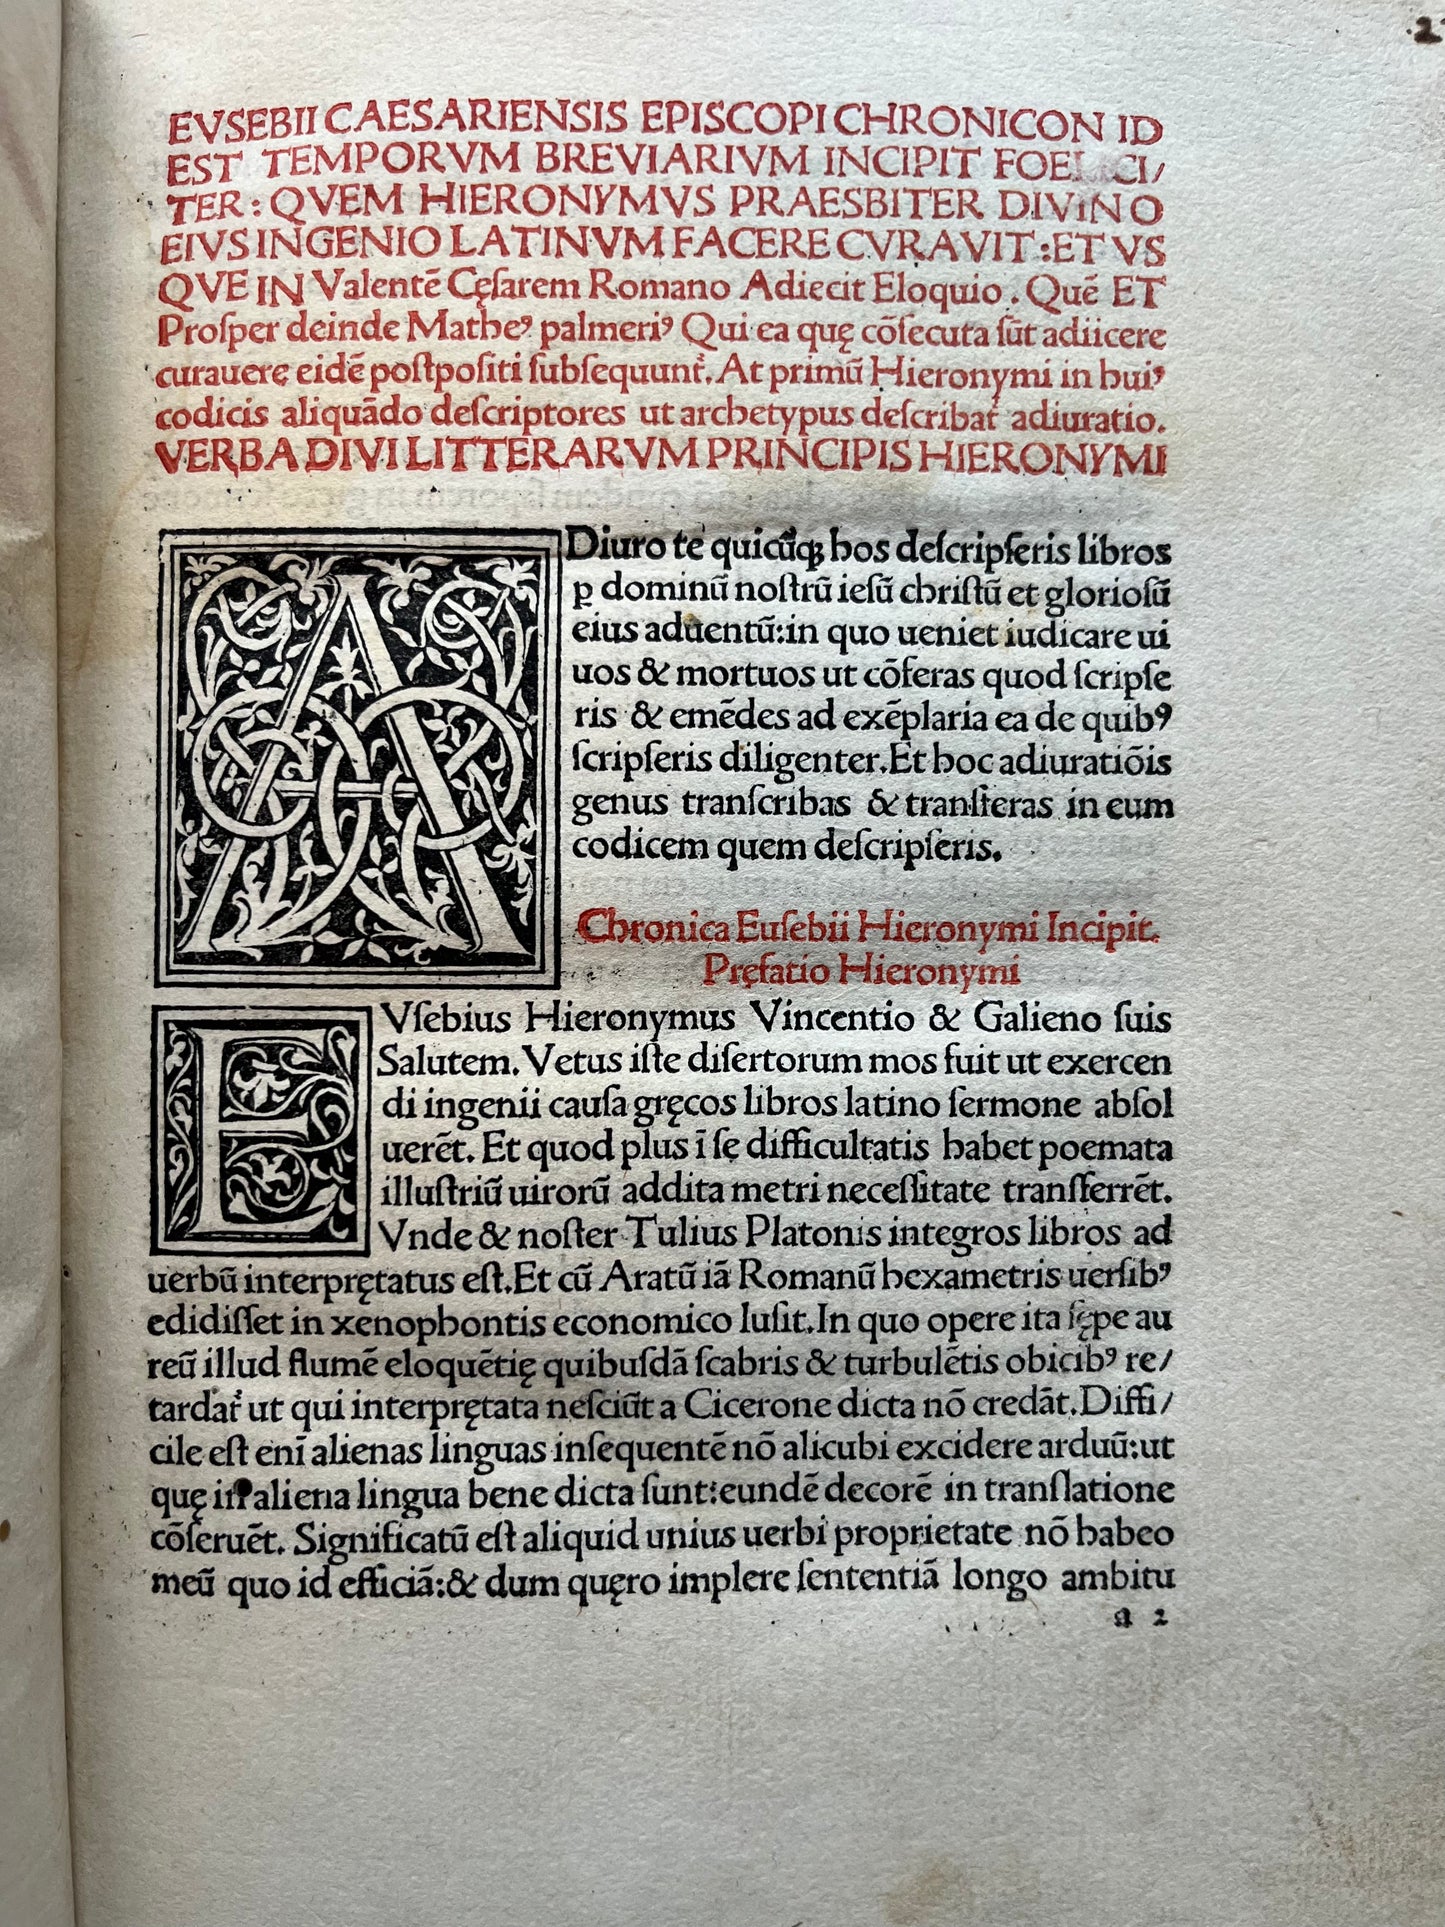 .2
EVSEBII CAESARIENSIS EPISCOPI CHRONICON ID
EST TEMPORVM BREVIARIVM INCIPIT FOELICI/
TER: QVEM HIERONYMVS PRAESBITER DIVINO
EIVS INGENIO LATINVM FACERE CVRAVIT: ET VS
QVE IN Valentē Cęſarem Romano Adiecit Eloquio. Quē ET
Proſper deinde Matheꝰ palmeriꝰ Qui ea quę cōſecuta ſūt adiicere
curauere eidē poſtpoſiti ſubſequunt᷑. At primū Hieronymi in huiꝰ
codicis aliquādo deſcriptores ut archetypus deſcribat᷑ adiuratio.
VERBA DIVI LITTERARVM PRINCIPIS HIERONYMI
ADiuro te quicūqꝫ hos deſcripſeris libros
ꝑ dominū noſtrū ieſū chriſtū et glorioſū
eius aduentū: in quo ueniet iudicare ui
uos & mortuos ut cōferas quod ſcripſe
ris & emēdes ad exēplaria ea de quibꝰ
ſcripſeris diligenter. Et hoc adiuratiōis
genus tranſcribas & tranſferas in eum
codicem quem deſcripſeris.
Chronica Euſebii Hieronymi Incipit.
Pręfatio Hieronymi
EVſebius Hieronymus Vincentio & Galieno ſuis
Salutem. Vetus iſte diſertorum mos fuit ut exercen
di ingenii cauſa gręcos libros latino ſermone abſol
uerēt. Et quod plus ī ſe difficultatis habet poemata
illuſtriū uirorū addita metri neceſſitate tranſferrēt.
Vnde & noſter Tulius Platonis integros libros ad
uerbū interpretatus eſt. Et cū Aratū iā Romanū hexametris uerſibꝰ
edidiſſet in xenophontis economico luſit. In quo opere ita ſępe au
reū illud flumē eloquētię quibuſdā ſcabris & turbulētis obicibꝰ re/
tardat᷑ ut qui interpretata neſciūt a Cicerone dicta nō credāt. Diffi/
cile eſt enī alienas linguas inſequentē nō alicubi excidere arduū: ut
quę in aliena lingua bene dicta ſunt: eundē decorē in tranſlatione
cōſeruēt. Significatū eſt aliquid unius uerbi proprietate nō habeo
meū quo id efficiā: & dum quęro implere ſententiā longo ambitu
a 2